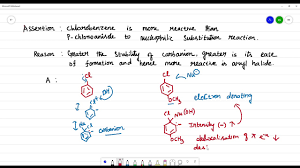 Assertion : Chlorobenzene is more reactive than
P-chloroanisole to nucleophilic substitution reaction.
Reason : Greater the stability of carbanion, greater is its ease
of formation and hence more reactive is aryl halide.
A :
Cl
Cl
Nu⊖
OCH₃
electron donating
Cl
OH
carbanion
Cl
Nu (OH)
OCH₃
Intensity (-) ↑
delocalisation of π e⁻s ↓